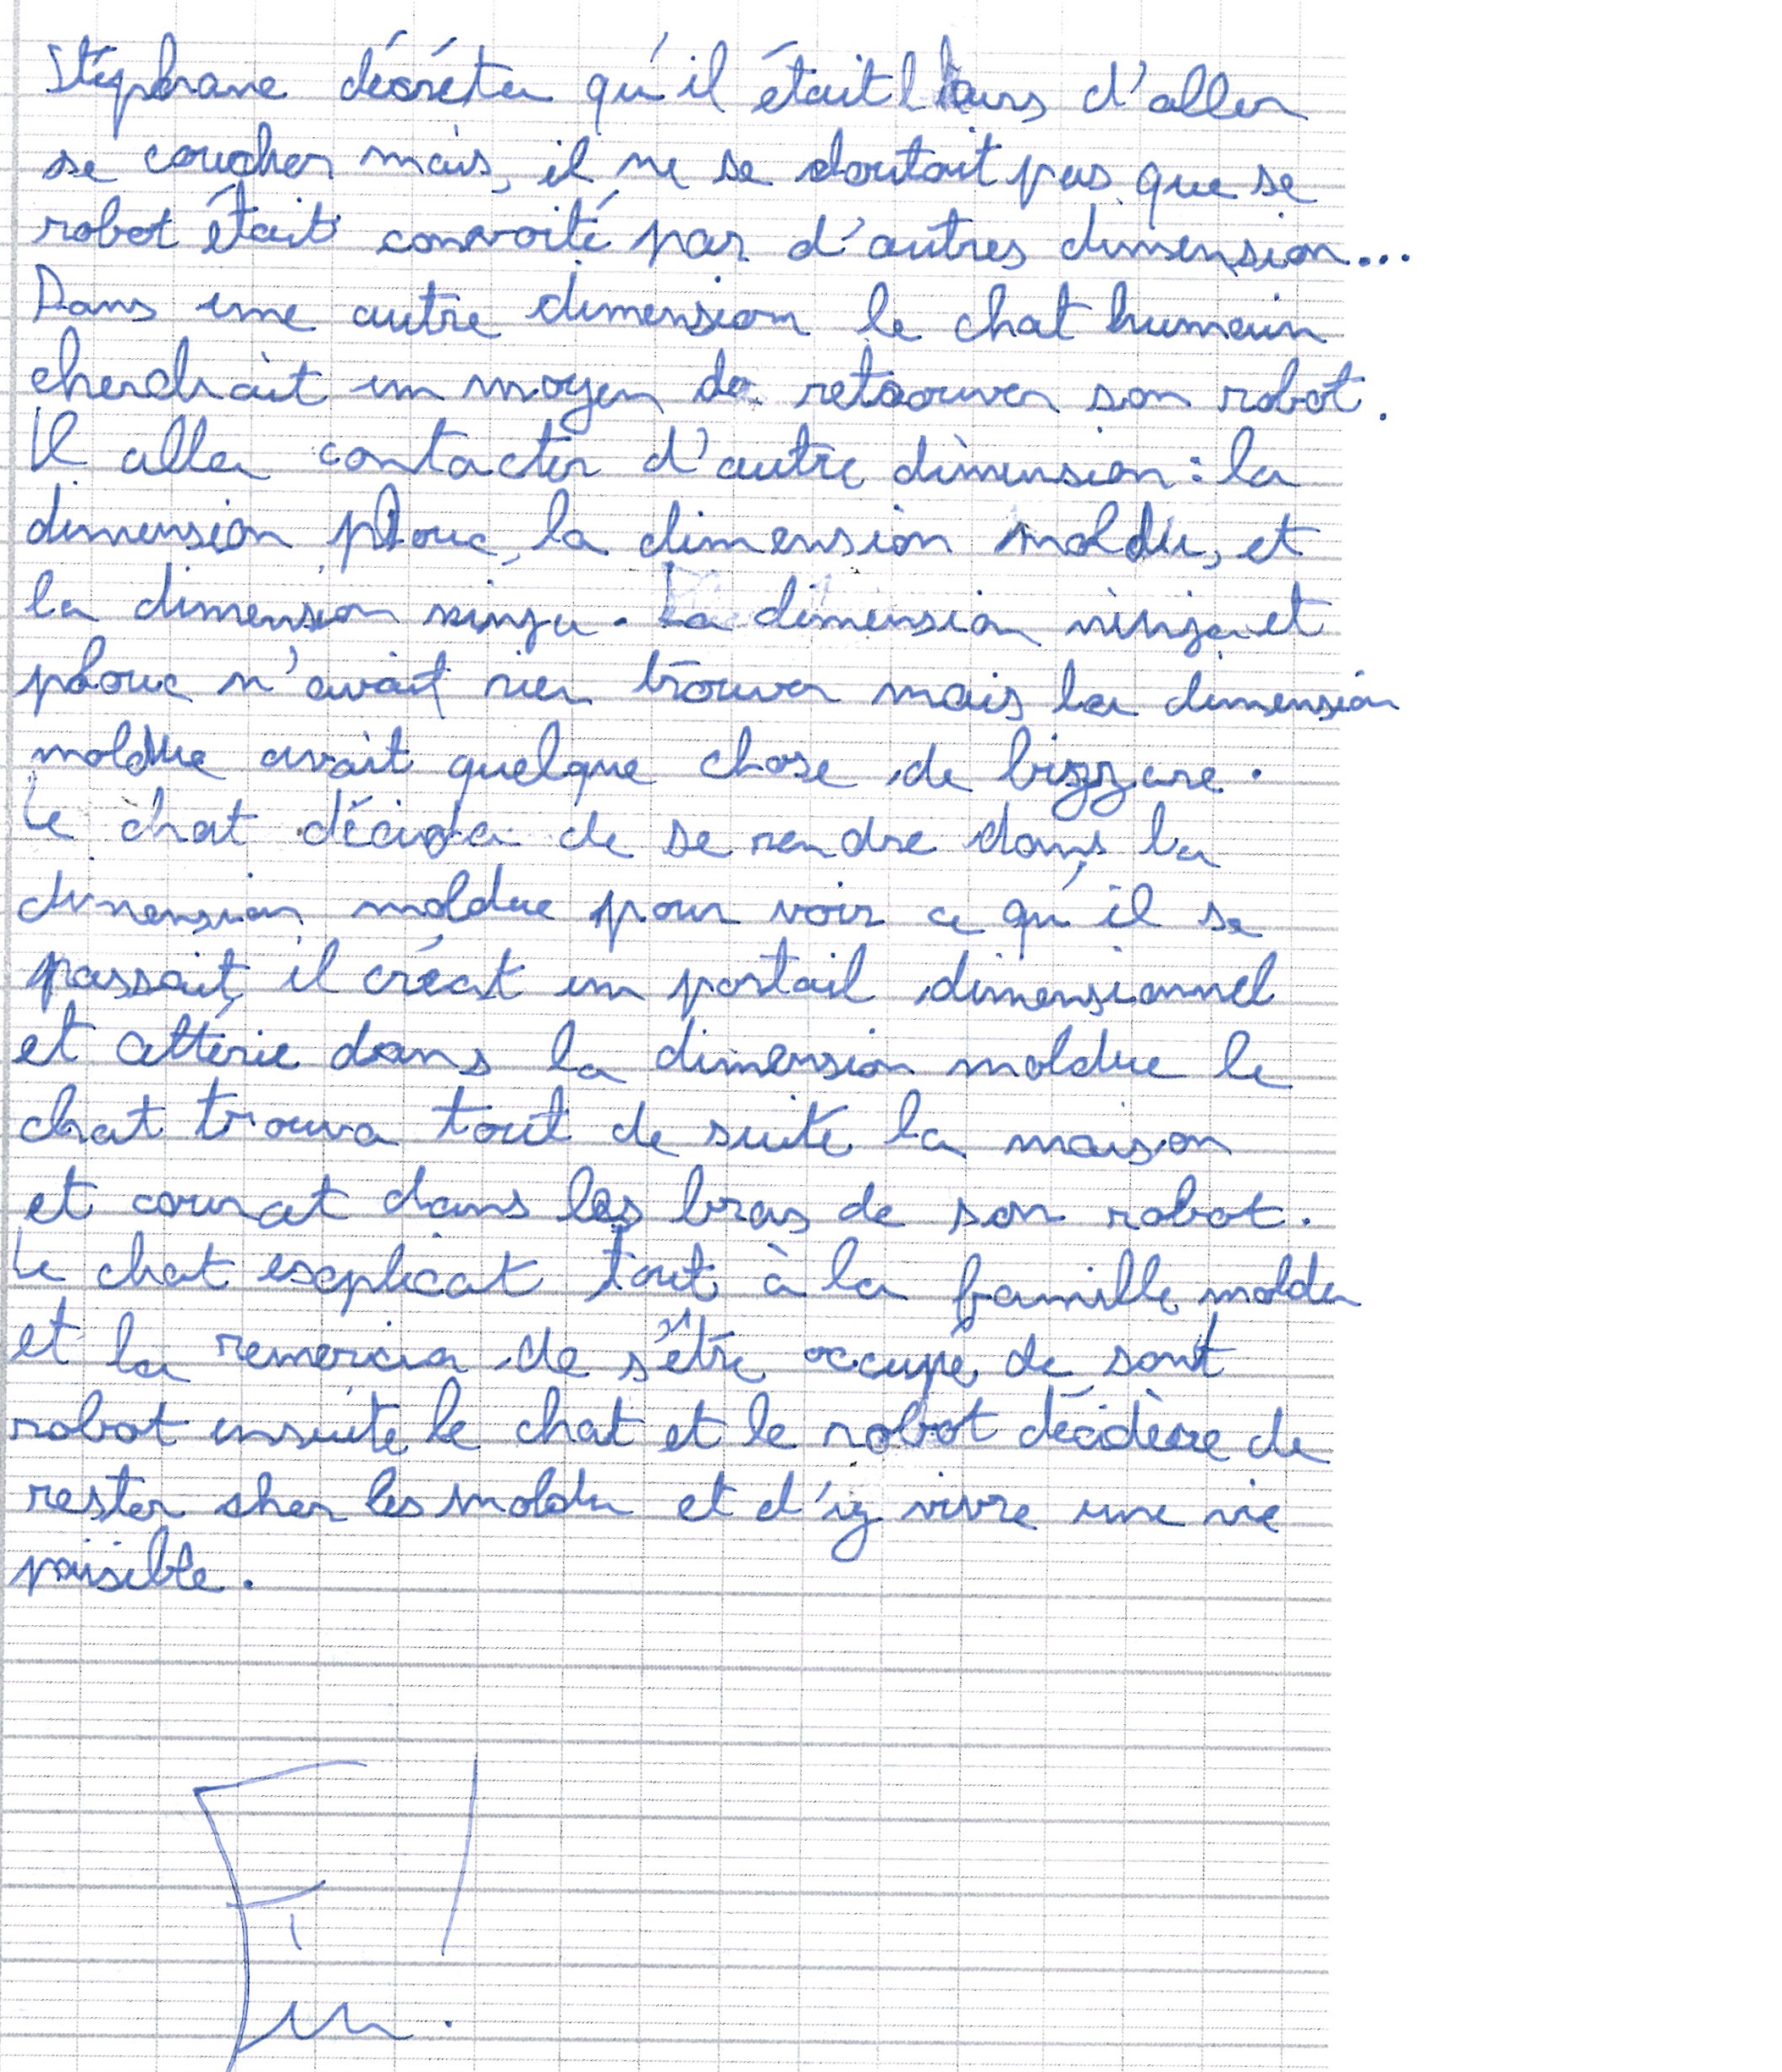 Stéphane décréta qu'il était l'heurs d'aller
se coucher mais, il ne se doutait pas que se
robot était convoité par d'autres dimension...
Dans une autre dimension le chat humain
cherchait un moyen de retrouver son robot.
Il alla contacter d'autre dimension : la
dimension plouc, la dimension moldu, et
la dimension ninja. La dimension ninja et
plouc n'avait rien trouver mais la dimension
moldue avait quelque chose de bizzare.
Le chat décida de se rendre dans la
dimension moldue pour voir ce qu'il se
passait, il créat un portail dimensionnel
et attérie dans la dimension moldue le
chat trouva tout de suite la maison
et courat dans les bras de son robot.
Le chat explicat tout à la famille moldu
et la remercia de s'être occupé de sont
robot ensuite le chat et le robot décidère de
rester cher les moldu et d'iy vivre une vie
paisible.
Fin.